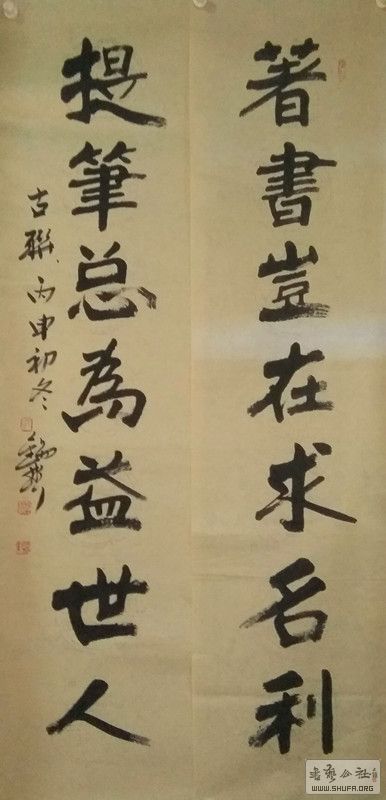 著書豈在求名利
提筆总為益世人
古聯丙申初冬
WWW.SHUFA.ORG